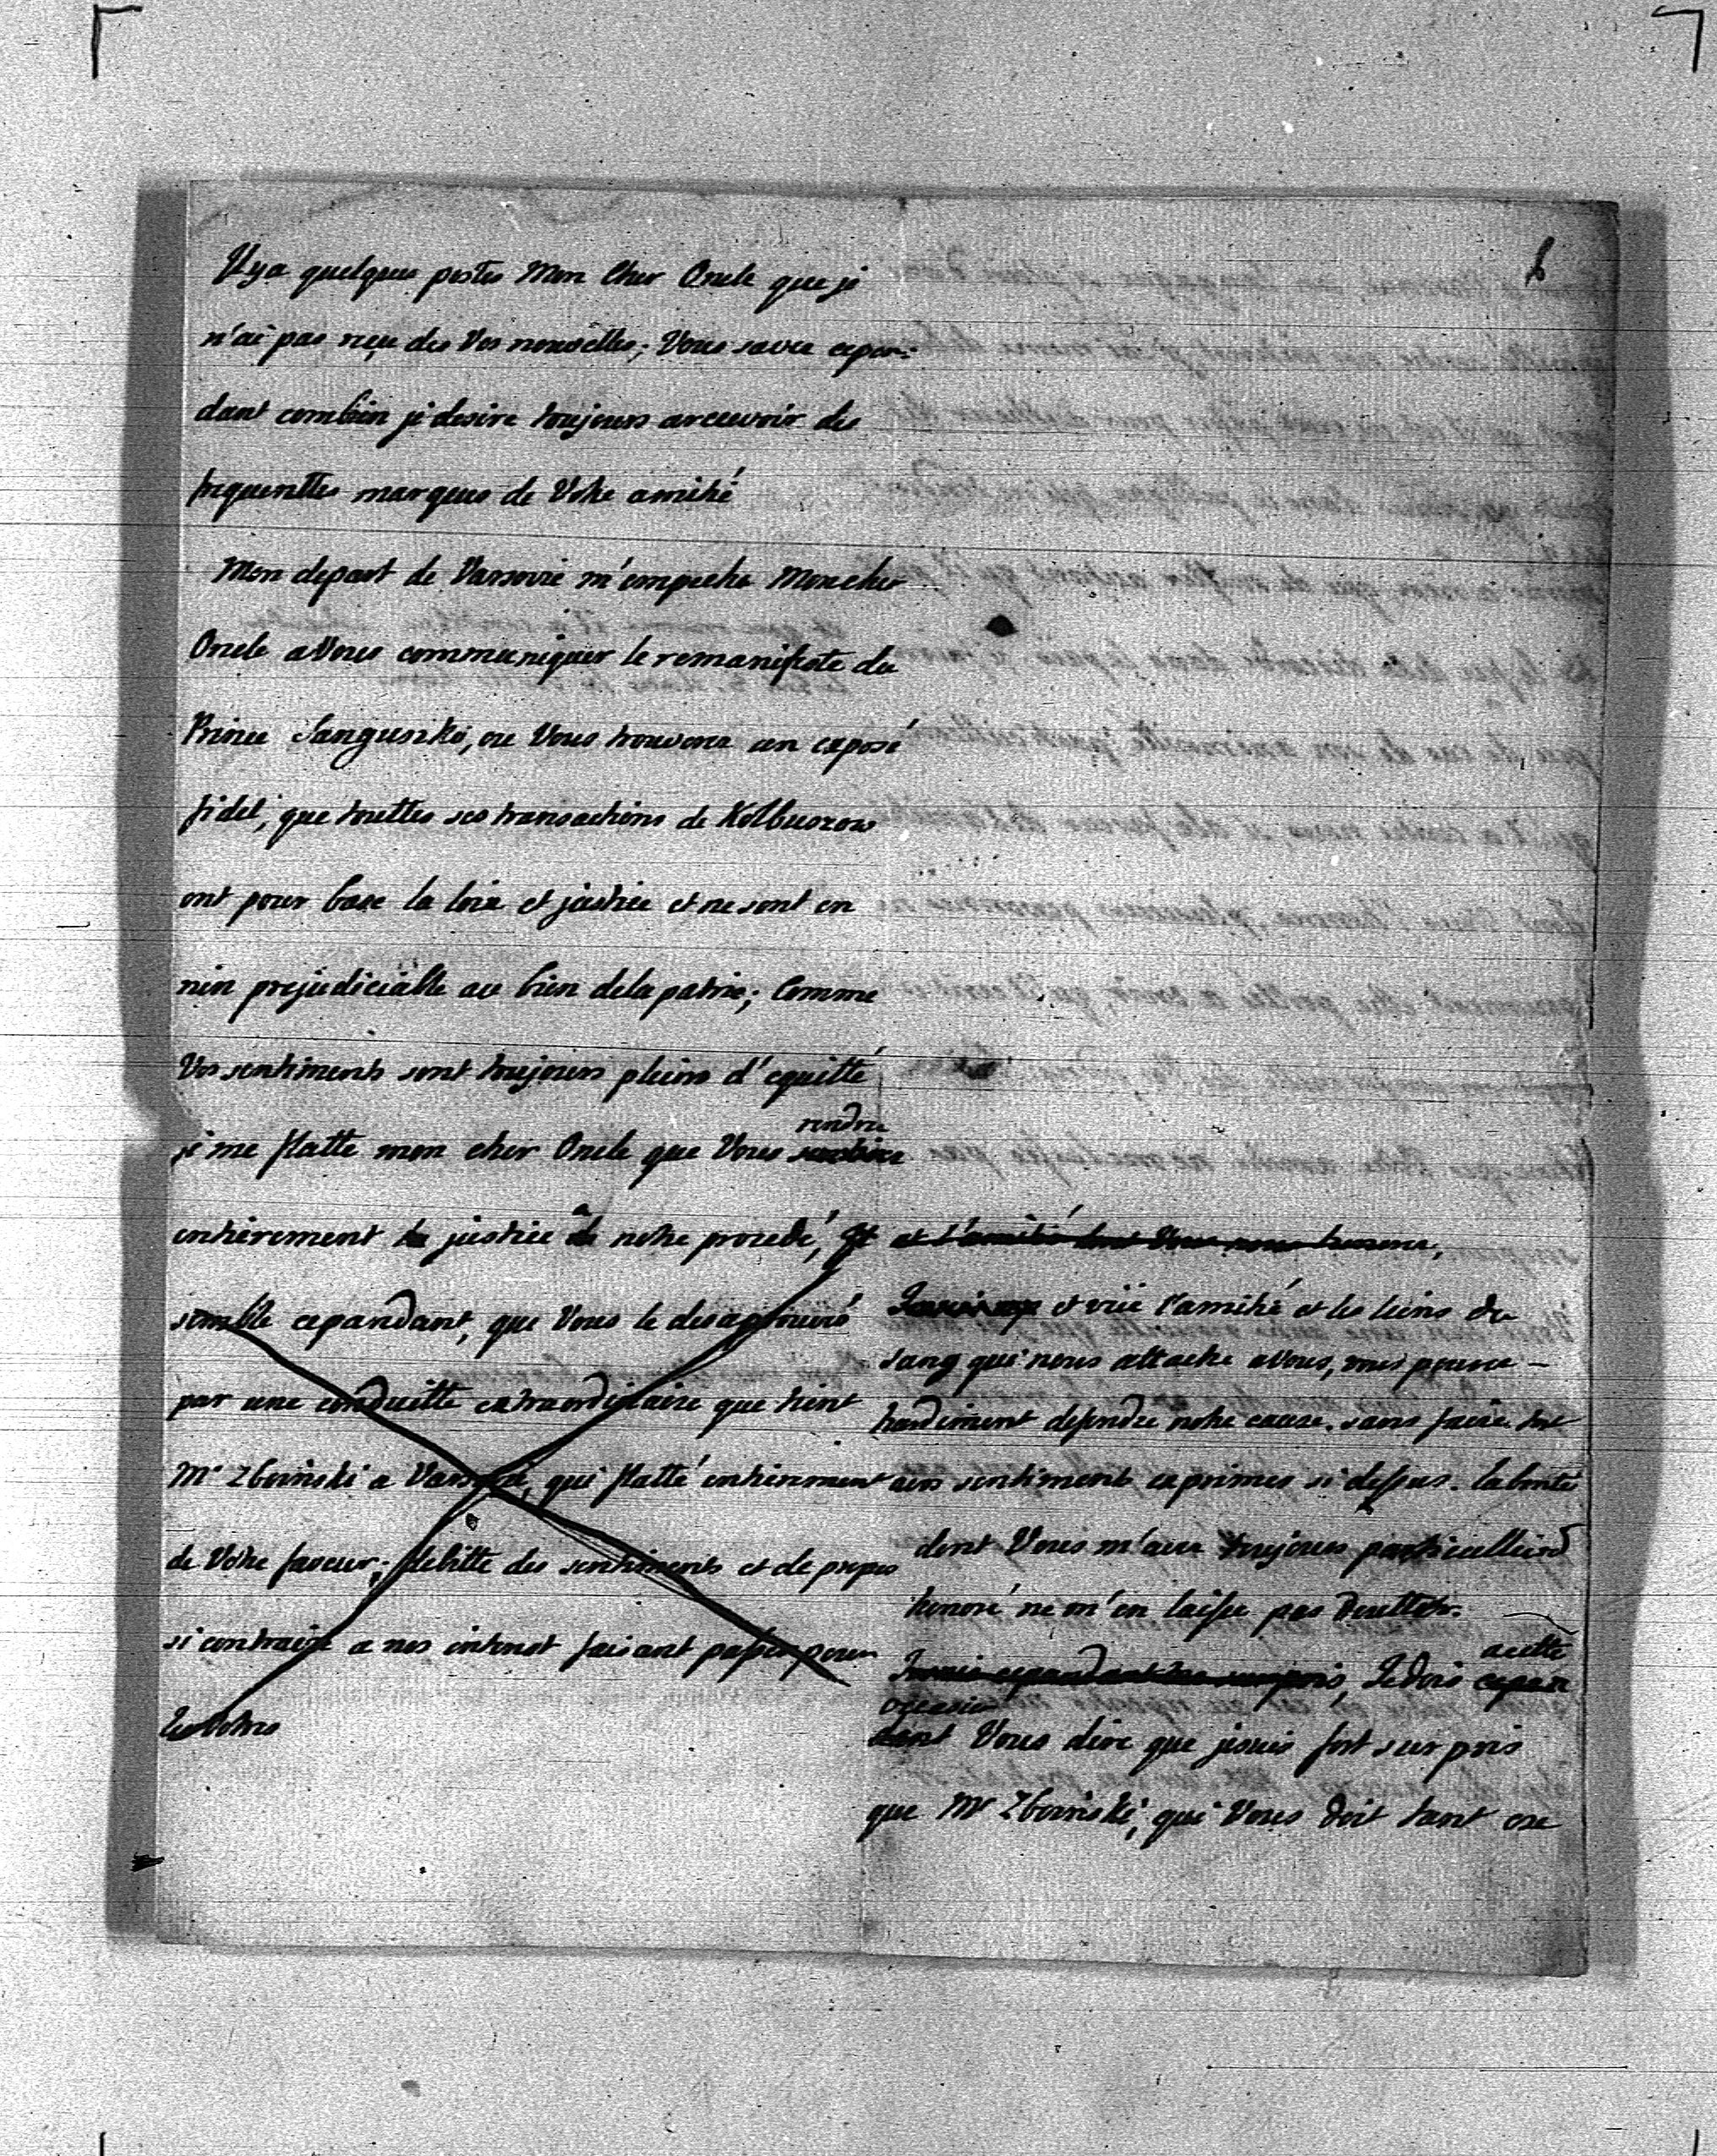 Il y a quelques postes Mon Cher Oncle que je
n'ai pas reçu des Vos nouvelles; Vous savez cepen-
dant combien je desire toujours arecevoir des
frequenttes marques de Votre amitié
Mon depart de Varsovie m'empeche Mon cher
Oncle a Vous communiquer le remanifeste du
Prince Sangusko, ou Vous trouverez un exposé
fidel, que touttes ses transactions de Kolbuszow
ont pour base la loix et justice et ne sont en
rien prejudiciable au bien de la patrie; Comme
Vos sentiments sont toujours pleins d'equitté
rendre
je me flatte mon cher Oncle que Vous
entierement la justice a notre procedé, Il
semble cepandant, que Vous le desaprouvé
par une conduitte extraordinaire que tient
Mr Zboinski a Varsovie, qui flatté entierement
de Votre faveur; debitte des sentiments et de propos
si contraire a nos interest faisant passer pour
les Votres
6
et l'amitié dont Vous nous
et vüe l'amitié et les leins du
sang qui nous attache a Vous,
hardiment defendre notre cause. sans faire tort
aux sentiments exprimes si dessus. la bonté
dont Vous m'avez toujours particulleire
honoré ne m'en laisse pas doutter.
acette
Je dois cepen
occasion
dant Vous dire que je suis fort surpris
que Mr Zboinski, qui Vous doit tant ose